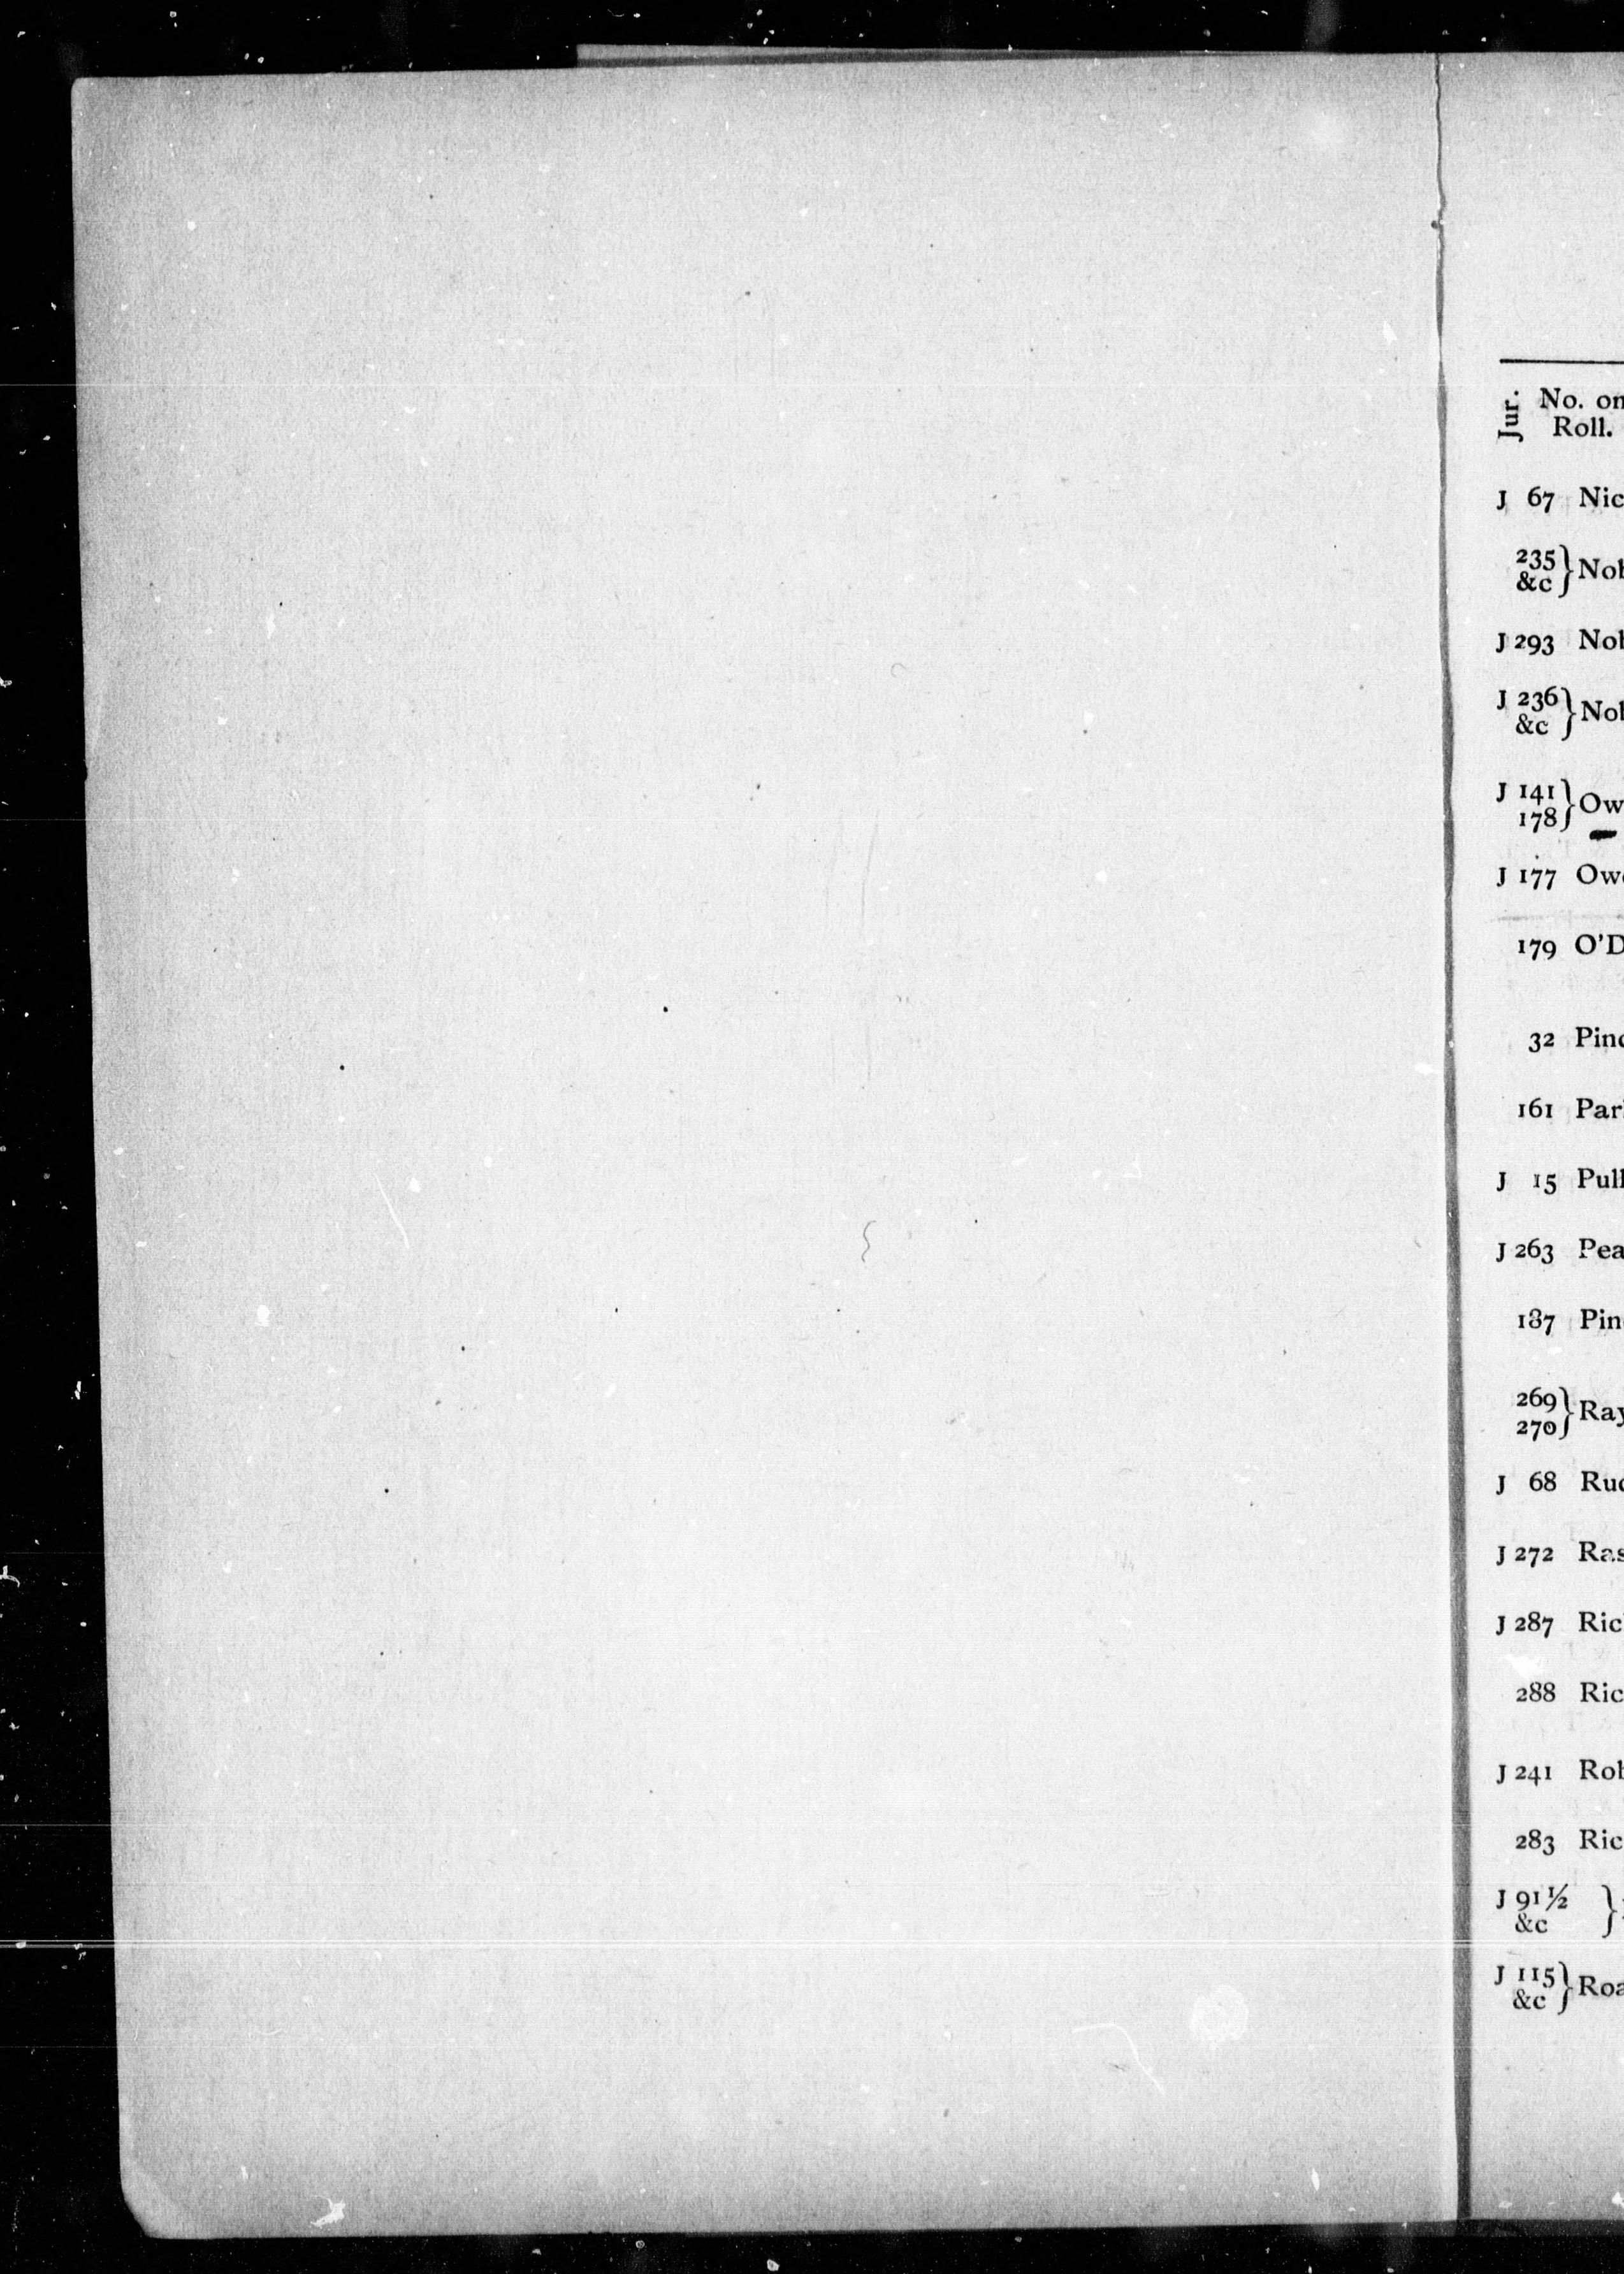 Jur. No. on
Roll.
J 67 Nic
235
&c } Nob
J 293 Nob
J 236
&c } Nob
J 141
178 } Ow
J 177 Owe
179 O'D
32 Pinc
161 Par
J 15 Pull
J 263 Pea
187 Pin
269
270 } Ray
J 68 Rud
J 272 Ras
J 287 Ric
288 Ric
J 241 Rob
283 Ric
J 91½
&c }
J 115
&c } Roa